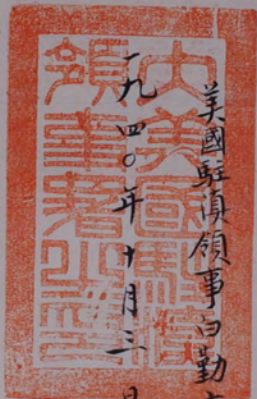 美國駐滇領事白勤
一九四〇年十月三日
大美國駐滇
領事署之印